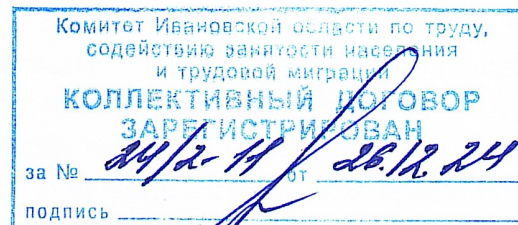 Комитет Ивановской области по труду,
содействию занятости населения
и трудовой миграции
КОЛЛЕКТИВНЫЙ ДОГОВОР
ЗАРЕГИСТРИРОВАН
за № 24/2-11 от 26.12.24
подпись